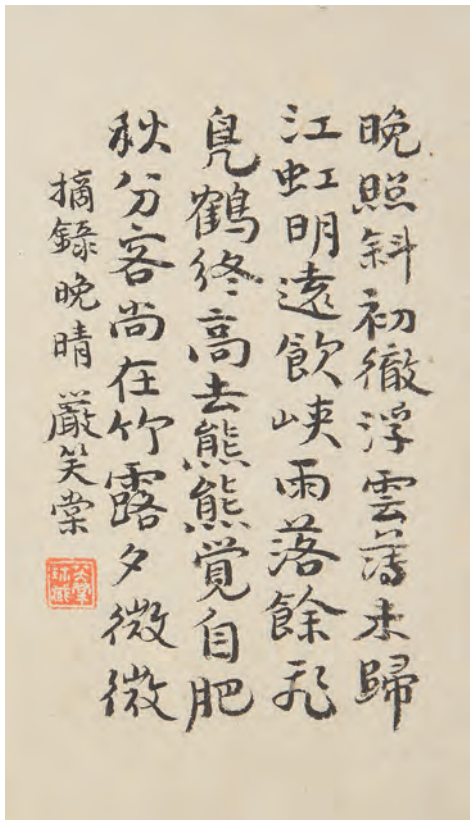 晚照斜初徹浮雲薄未歸
江虹明遠飲峽雨落餘飛
鳧鶴終高去熊熊覚自肥
秋分客尚在竹露夕微微
摘錄晚晴 嚴笑棠
笑棠珍藏